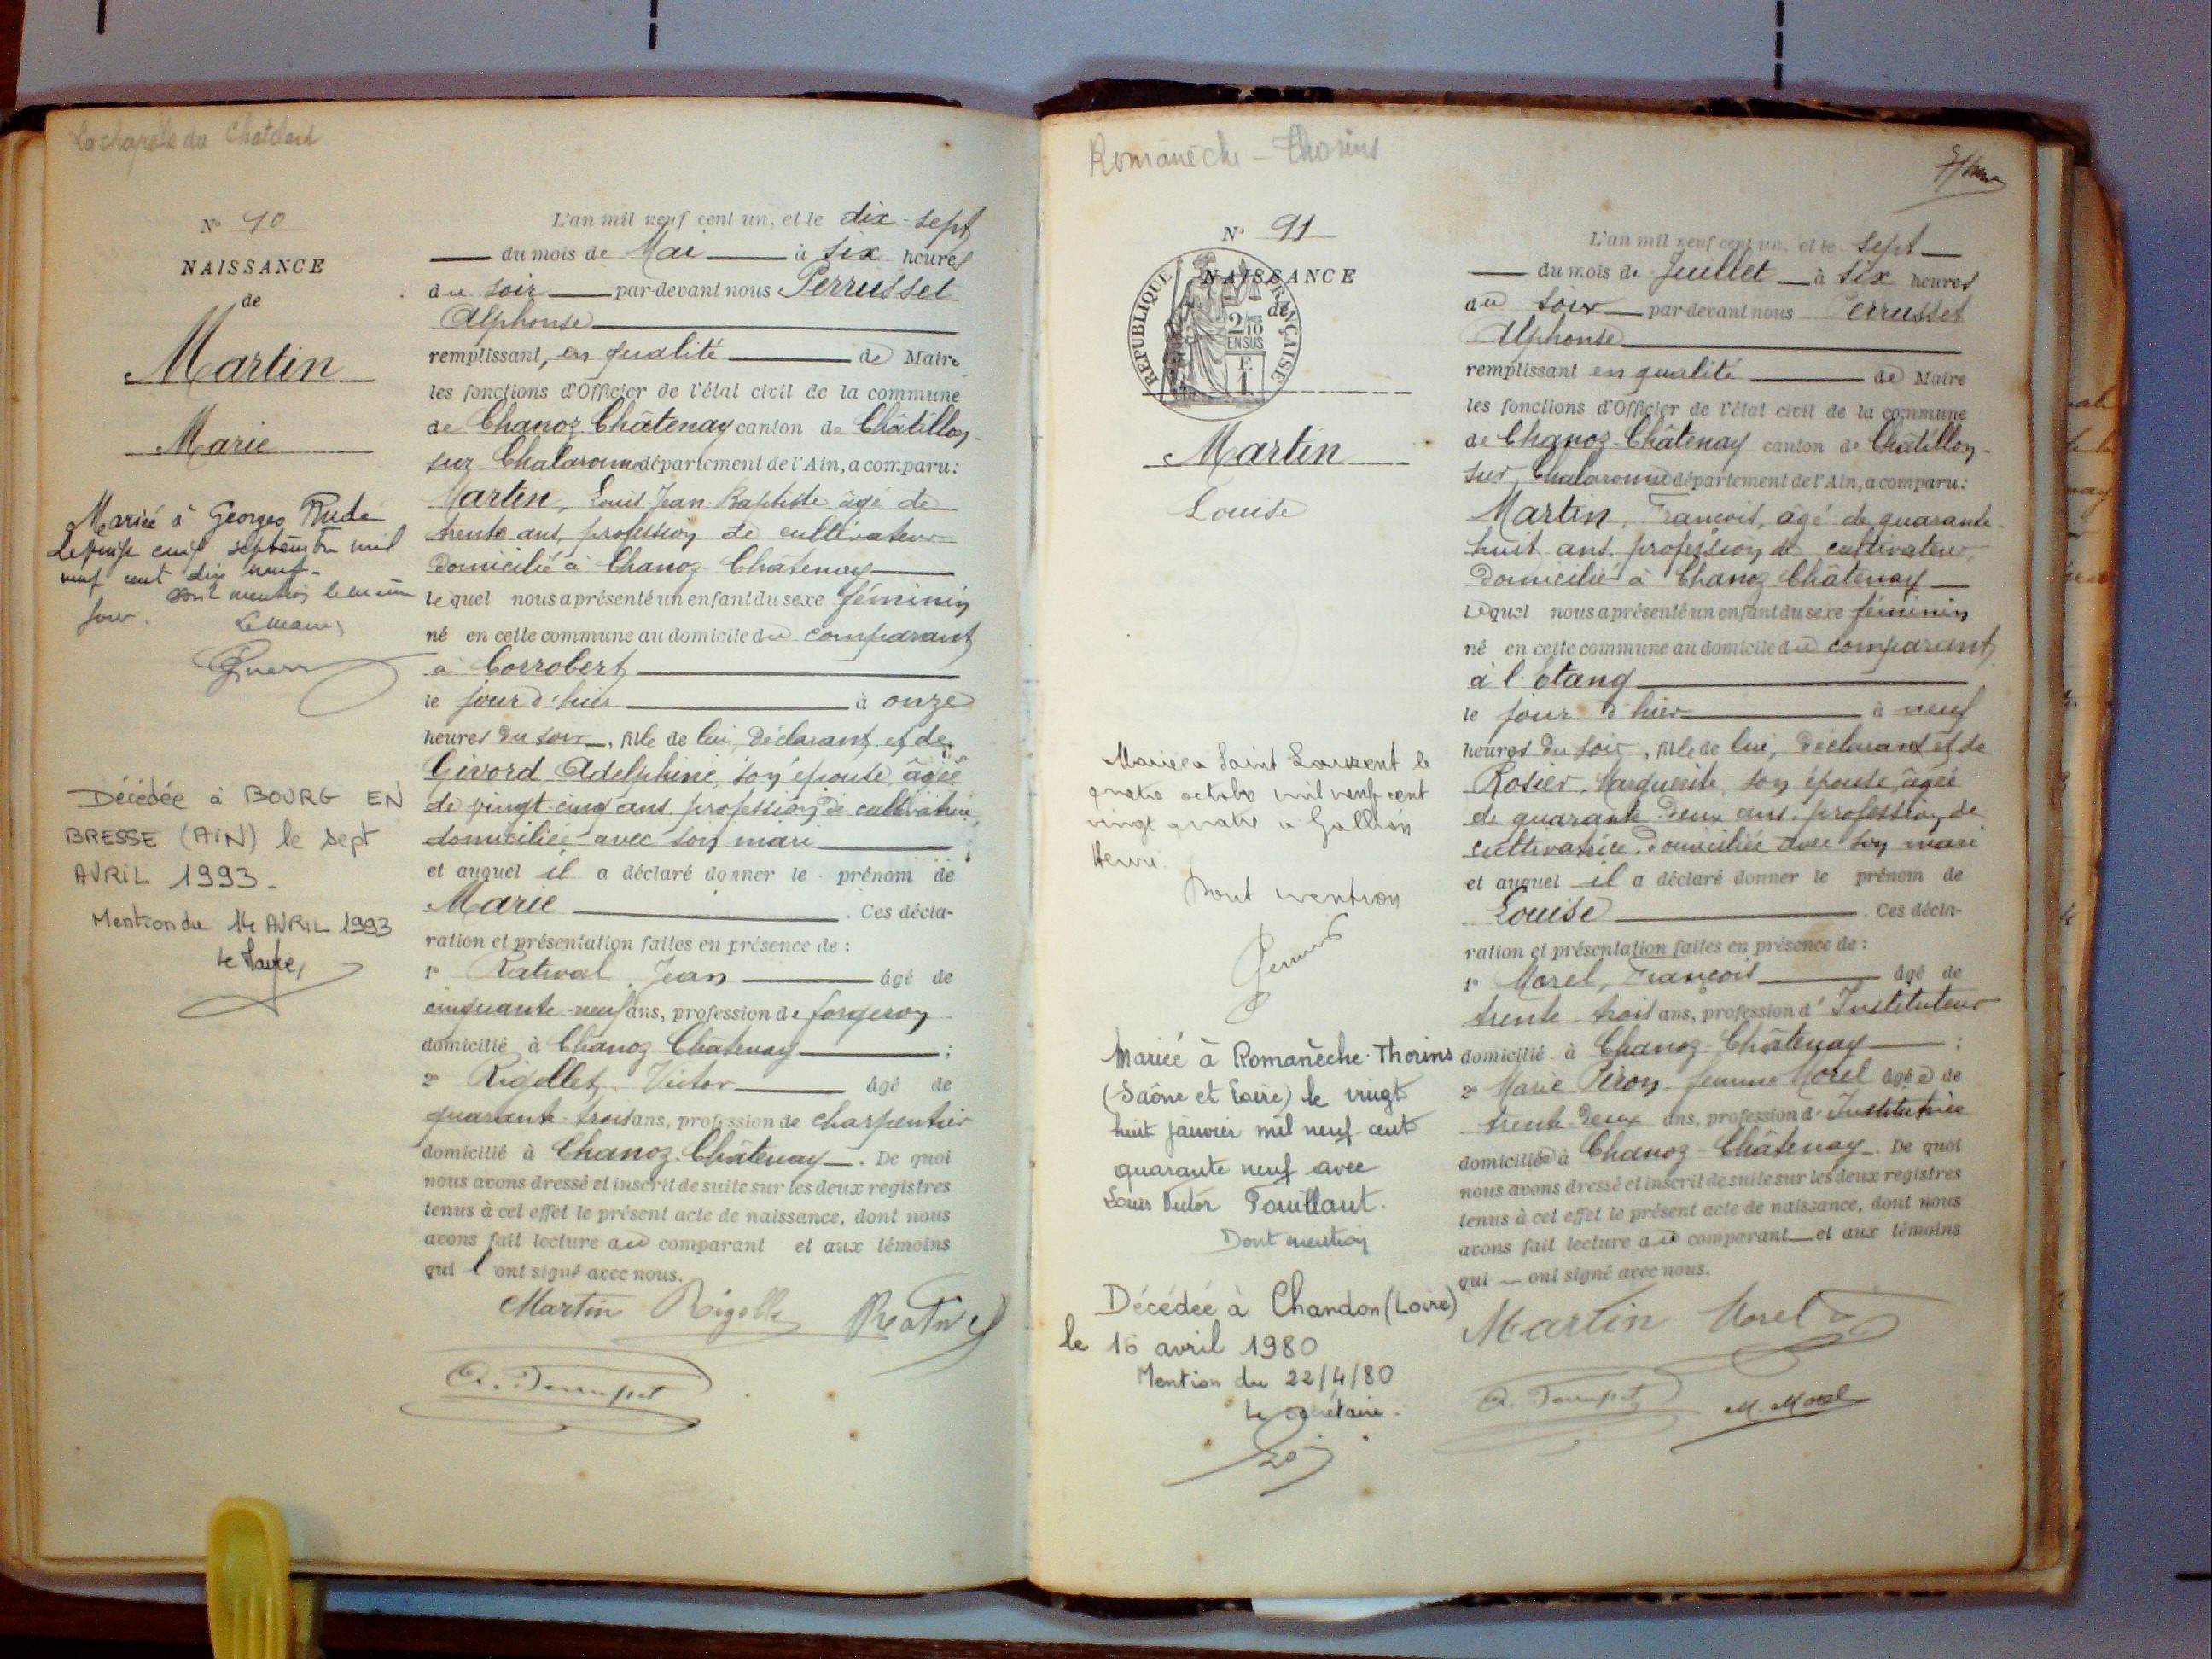 La chapelle du Chatelard
N° 10
NAISSANCE
de
Martin
Marie
Mariée à Georges Rude
le septembre mil
neuf cent dix neuf
dont mention le même
jour. Le Maire,
Décédée à BOURG EN
BRESSE (AiN) le sept
AVRiL 1993.
Mention du 14 AVRiL 1993
Le Maire,
L'an mil neuf cent un, et le dix-sept
du mois de Mai à six heures
du soir par-devant nous Perrusset
Alphonse
remplissant, en qualité de Maire
les fonctions d'Officier de l'état civil de la commune
de Chanoz-Châtenay canton de Châtillon-
sur Chalaronne département de l'Ain, a comparu:
Martin, Louis Jean Baptiste âgé de
trente ans, profession de cultivateur
domicilié à Chanoz-Châtenay
lequel nous a présenté un enfant du sexe féminin
né en cette commune au domicile du comparant
à Corrobert
le jour d'hier à onze
heures du soir, fille de lui, déclarant, et de
Givord Adelphine, son épouse âgée
de vingt-cinq ans, profession de cultivatrice,
domiciliée avec son mari ;
et auquel il a déclaré donner le prénom de
Marie . Ces décla-
ration et présentation faites en présence de :
1° Jean âgé de
cinquante-neuf ans, profession de forgeron
domicilié à Chanoz Châtenay ;
2° Rigollet, Victor âgé de
quarante-trois ans, profession de charpentier
domicilié à Chanoz-Châtenay. De quoi
nous avons dressé et inscrit de suite sur les deux registres
tenus à cet effet le présent acte de naissance, dont nous
avons fait lecture au comparant et aux témoins
qui ont signé avec nous.
Martin Rigollet
Romanèche-Thorins
N° 91
NAISSANCE
de
RÉPUBLIQUE FRANÇAISE
2/10
EN SUS
F.
1
Martin
Louise
Mariée à Saint Laurent le
quatre octobre mil neuf cent
vingt quatre à Gallion
Henri.
Dont mention
Mariée à Romanèche-Thorins
(Saône et Loire) le vingt
huit janvier mil neuf cent
quarante neuf avec
Louis Victor Pouillaut.
Dont mention
Décédée à Chandon (Loire)
le 16 avril 1980
Mention du 22/4/80
Le secrétaire.
L'an mil neuf cent un, et le sept
du mois de Juillet à six heures
du soir par-devant nous Perrusset
Alphonse
remplissant en qualité de Maire
les fonctions d'Officier de l'état civil de la commune
de Chanoz-Châtenay canton de Châtillon-
sur Chalaronne département de l'Ain, a comparu:
Martin, François, âgé de quarante-
huit ans, profession de cultivateur,
domicilié à Chanoz Châtenay
lequel nous a présenté un enfant du sexe féminin
né en cette commune au domicile du comparant
à l'Étang
le jour d'hier à neuf
heures du soir, fille de lui, déclarant et de
Rosier, Marguerite, son épouse, âgée
de quarante-deux ans, profession de
cultivatrice, domiciliée avec son mari
et auquel il a déclaré donner le prénom de
Louise . Ces décla-
ration et présentation faites en présence de :
1° Morel, François âgé de
trente-trois ans, profession d'Instituteur
domicilié à Chanoz-Châtenay ;
2° Marie Péron, femme Morel âgée de
trente-deux ans, profession d'Institutrice
domiciliée à Chanoz-Châtenay. De quoi
nous avons dressé et inscrit de suite sur les deux registres
tenus à cet effet le présent acte de naissance, dont nous
avons fait lecture au comparant et aux témoins
qui ont signé avec nous.
Martin Morel
M. Morel